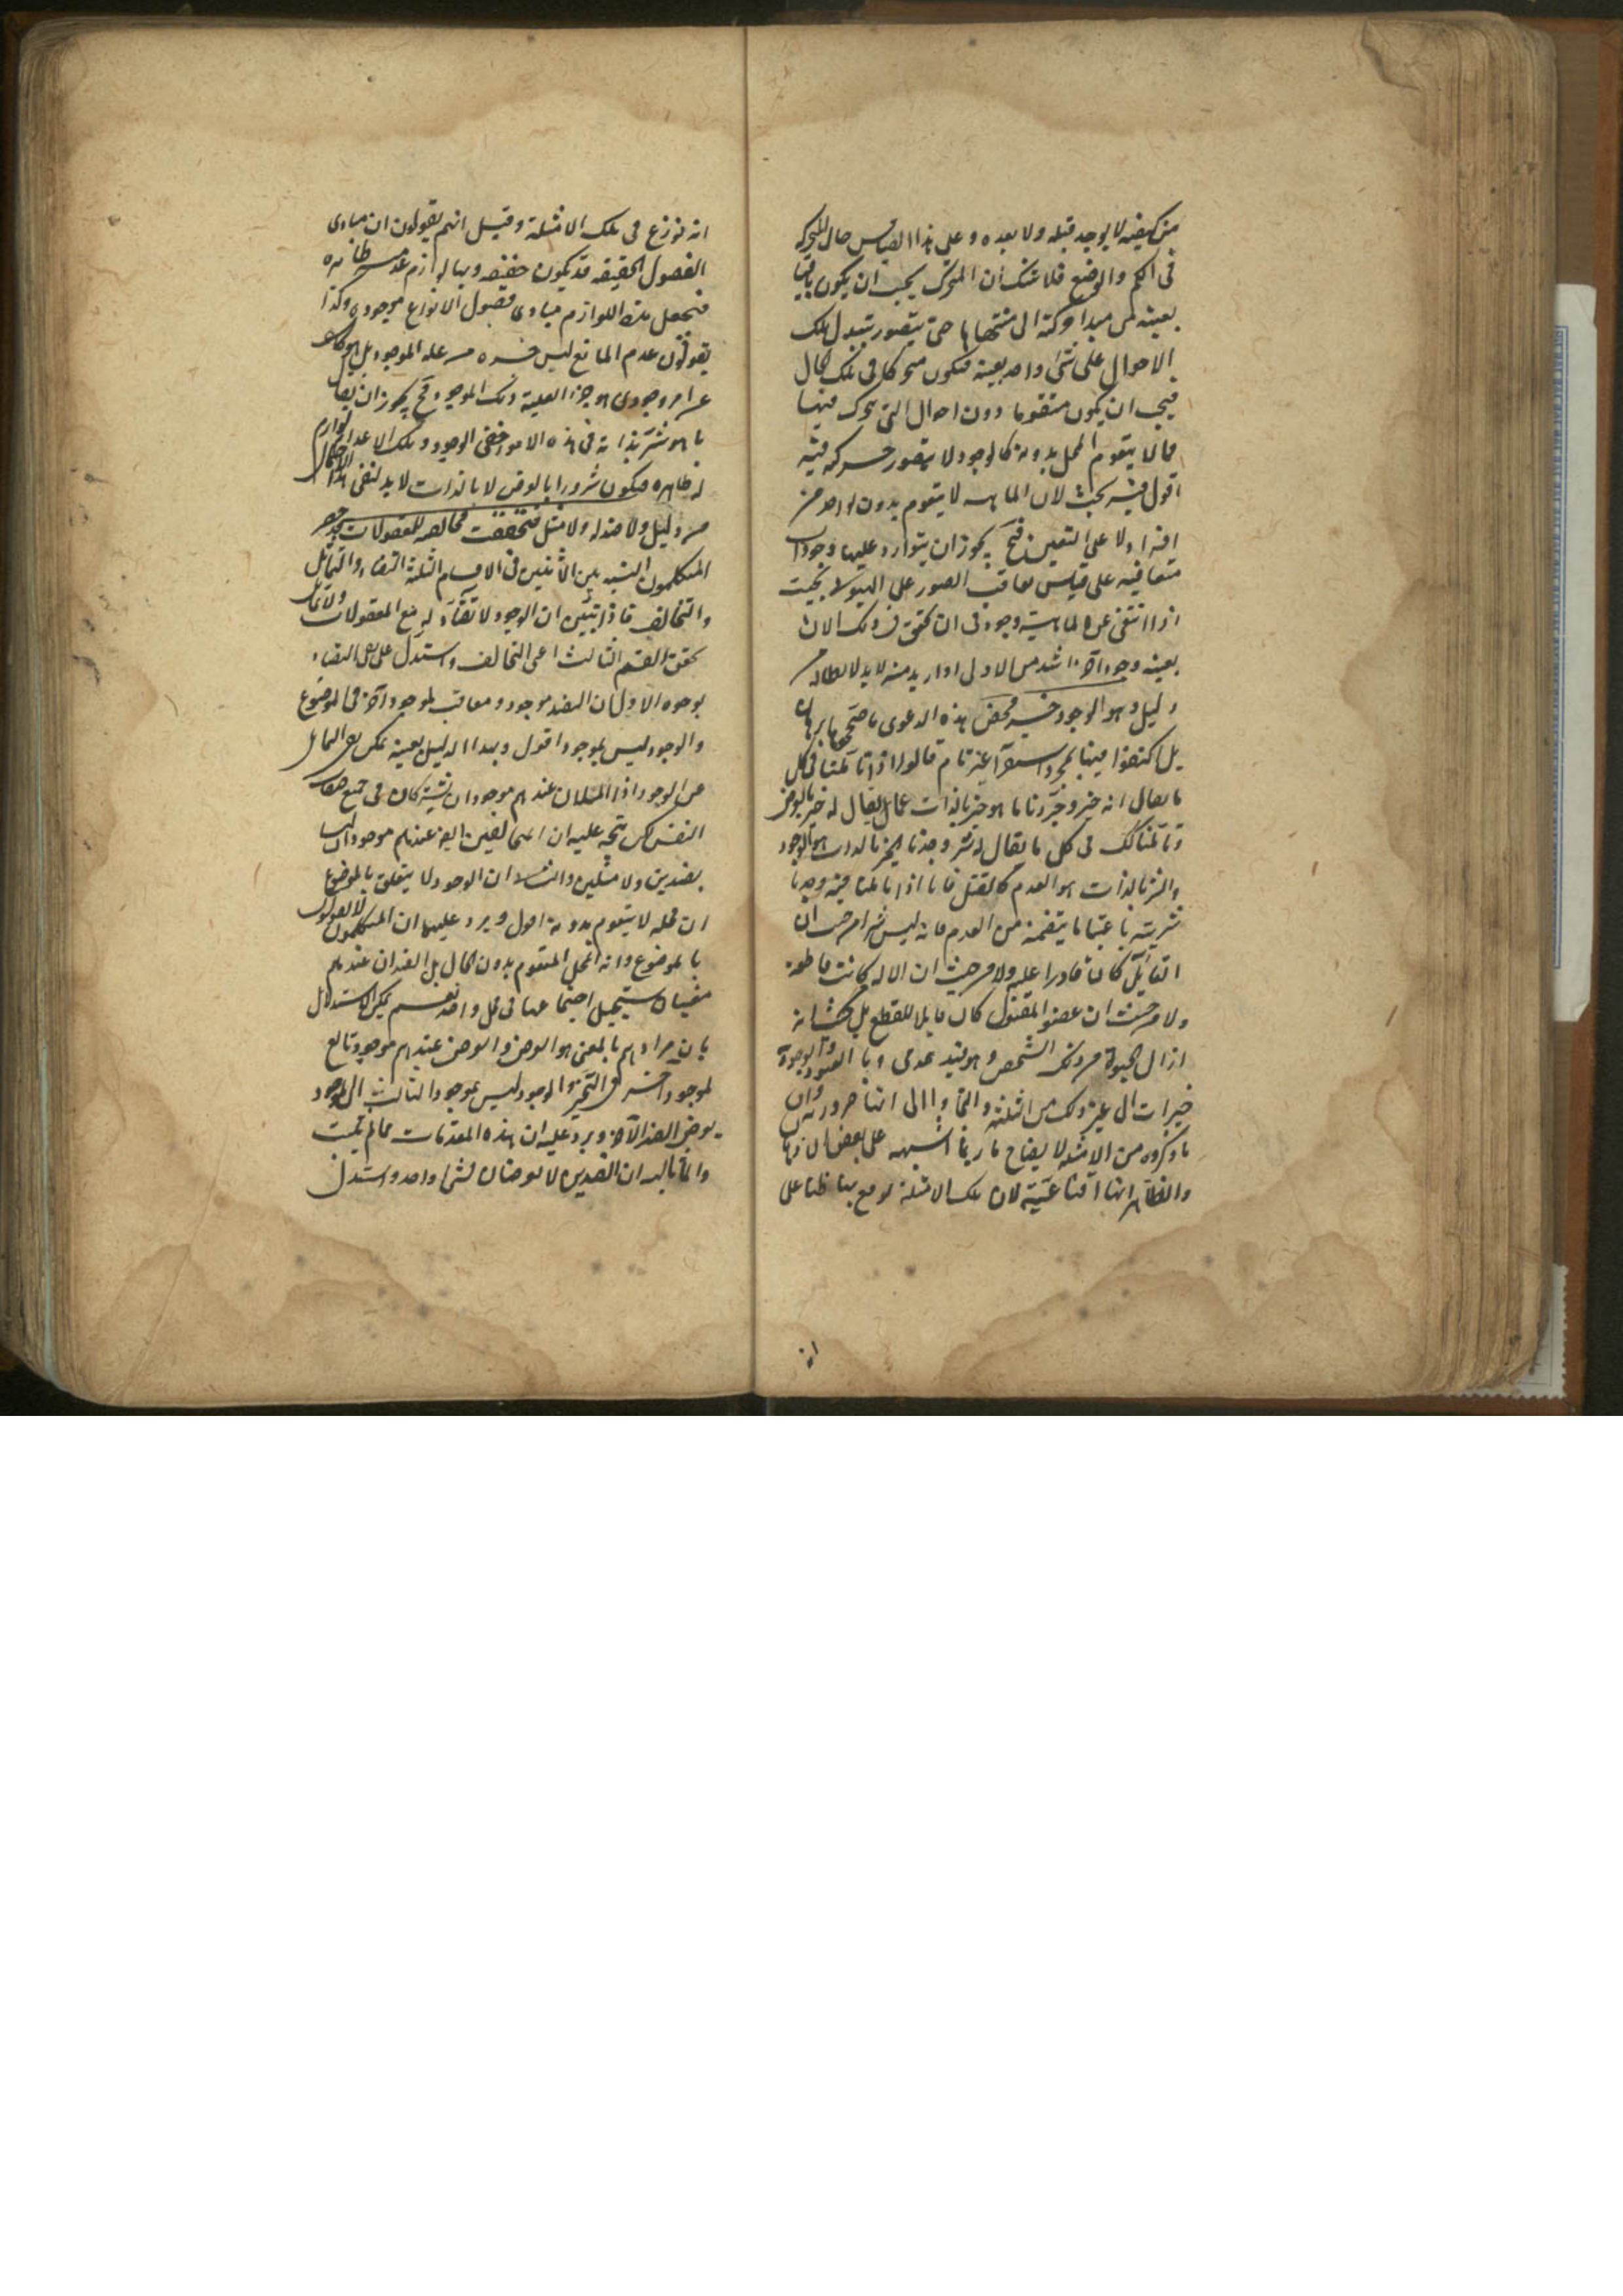 من كيفية لا يوجد قبله ولا بعده وعلى هذا القياس حال الحركة
فى الكم والوضع فلا شك ان المتحرك يجب ان يكون باقيا
بعينه من مبدا حركته الى منتهاها حتى يتصور تبدل تلك
الاحوال على شئ واحد بعينه فيكون متحركا فى تلك الحال
فيجب ان يكون متقوما دون احوال التى يتحرك فيها
فما لا يتقوم المحل بدونه كالوجود لا يتصور حركة فيه
اقول فيه بحث لان الماهية لا يتقوم بدون واحد من
افراد لا على التعيين فح يجوز ان يتوارد عليها وجودات
متعاقبة على قياس تعاقب الصور على الهيولا بحيث
اذا انتفى عن الماهية وجود فى ان تحقق فى ذلك الان
بعينه وجود آخر اشد من الاول او ازيد منه لا بد لابطاله من
دليل وهو الوجود خير محض هذه الدعوى ما صححوها ببرهان
بل اكتفوا فيها بمجرد استقراء غير تام قالوا اذا تأملنا فى كل
ما يقال انه خير وجردنا ما هو خير بالذات عما يقال له خير بالعرض
وتأملنا كك فى كل ما يقال له شر وجدنا الخير بالذات هو الوجود
والشر بالذات هو العدم كالقتل فانا اذا تأملنا فيه وجدنا
شريته باعتبار ما يتضمنه من العدم فانه ليس شرا من حيث ان
القاتل كان قادرا عليه ولا من حيث ان الالة كانت قاطعة
ولا من حيث ان عضو المقتول كان قابلا للقطع بل من حيث انه
ازال الحيوة من ذلك الشخص وهو قيد عدمى وباقى القيود الوجودية
خيرات الى غير ذلك من امثلة وادعوا انها ضرورية وان
ما ذكروه من الامثلة لايضاح ما ربما اشتبه على بعض الاذهان
والظاهر انها اقناعية لان تلك الامثلة لو وقع بها ظنا على
انه
انه نوزع فى تلك الامثلة وقيل انهم يقولون ان مبادى
الفصول الحقيقة قد يكون خفية وبها لوازم عدمية ظاهره
فنجعل هذه اللوازم مبادى فصول الانواع موجودة وكذا
يقولون عدم المانع ليس جزء من علة الموجود بل هو كاشف
عن امر وجودى هو جزء العلية ذلك الموجود فح يجوز ان يقال
ما هو شر بذاته فى هذه الامور خفى الوجود وتلك الاعدام لوازم
له ظاهره فيكون شرورا بالعرض لا بالذات لا بد لنفى هذا الاحتمال
من دليل ولا ضد له ولا مثل فتحققت مخالفته للمعقولات حصر
المتكلمون النسبة بين الاثنين فى الاقسام الثلثة التضاد والتماثل
والتخالف فاذا تبين ان الوجود لا تضاد له مع المعقولات ولا تماثل
تحقق القسم الثالث اعنى التخالف واستدل على نفى التضاد
بوجوه الاول ان الضد موجود ومعاقب لموجود آخر فى الموضوع
والوجود ليس بموجود اقول وهذا الدليل بعينه يمكن نفى التماثل
عن الوجود اذ المثلان عندهم موجودان يشتركان فى جميع صفات
النفس لكن يتجه عليه ان المتخالفين ايضا عندهم موجودان ليسا
بضدين ولا مثلين والثانى ان الوجود لا يتعلق بالموضوع
ان محله لا يتقوم بدونه اقول ويرد عليها ان المتكلمون لا يقولون
بالموضوع وانه المحل المتقوم بدون الحال بل الضدان عندهم
معنيان يستحيل اجتماعهما فى محل واحد نعم يمكن الاستدلال
بان مرادهم بالمعنى هو العرض والعرض عندهم موجود تابع
لموجود آخر فى التحيز والوجود ليس بموجود الثالث ان الوجود
يعرض الضد الآخر ويرد عليه ان هذه المقدمات مما لم يثبت
وانما بالبداهة ان الضدين لا يعرضان لشئ واحد واستدل